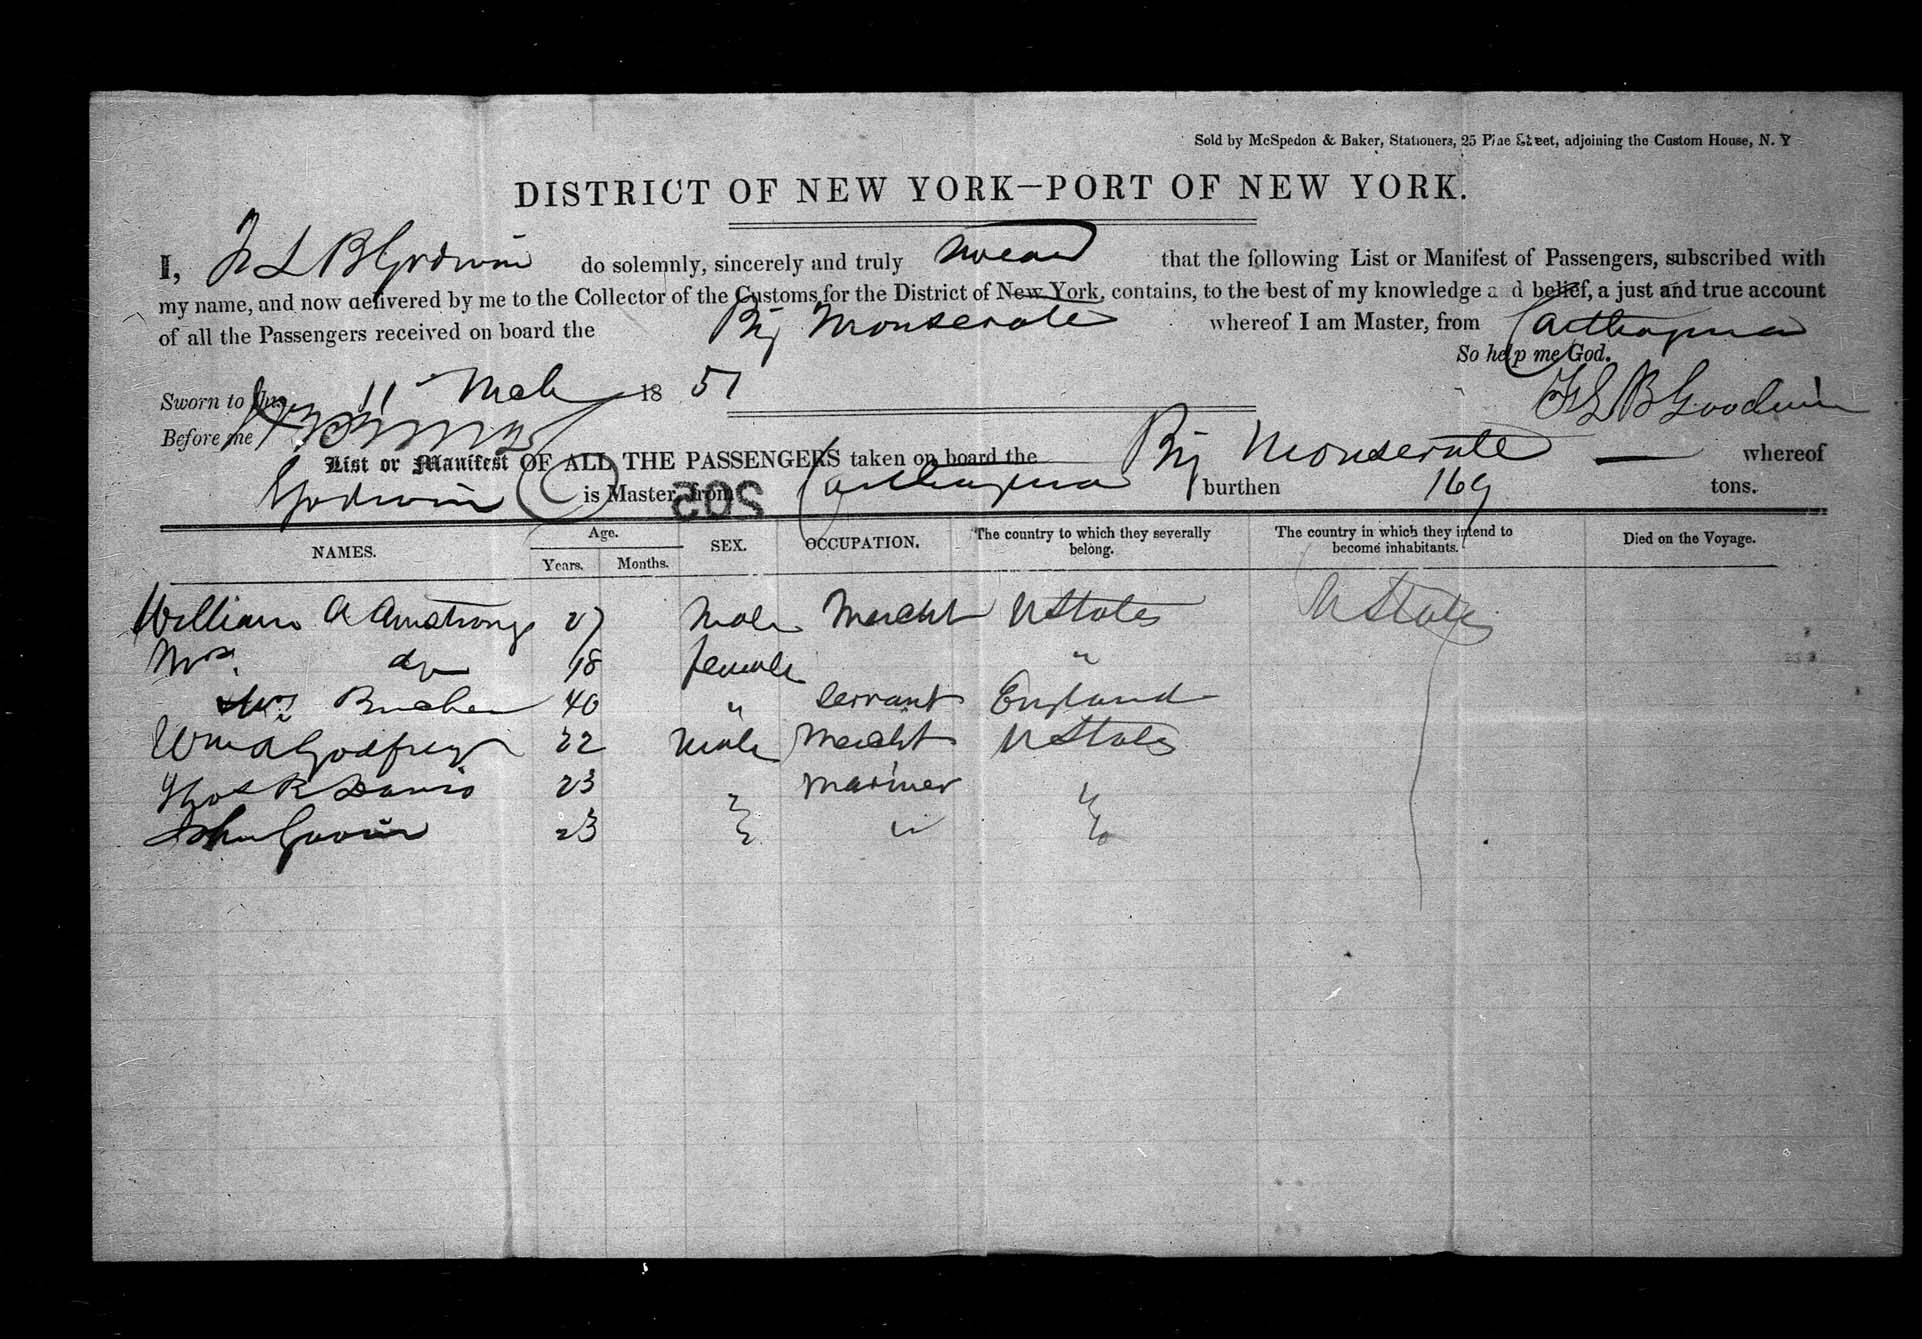 Sold by McSpedon & Baker, Stationers, 25 Pine Street, adjoining the Custom House, N. Y
DISTRICT OF NEW YORK—PORT OF NEW YORK.
I, F L B Godwin do solemnly, sincerely and truly swear that the following List or Manifest of Passengers, subscribed with
my name, and now delivered by me to the Collector of the Customs for the District of New York, contains, to the best of my knowledge and belief, a just and true account
of all the Passengers received on board the Brig Monserate whereof I am Master, from Carthagena
So help me God.
Sworn to this 11 Mch 1851
F L B Goodwin
Before me
List or Manifest OF ALL THE PASSENGERS taken on board the Brig Monserate — whereof
Godwin is Master, from Carthagena burthen 169 tons.
205
NAMES. Age. Years. Months. SEX. OCCUPATION. The country to which they severally belong. The country in which they intend to become inhabitants. Died on the Voyage.
William A Armstrong 27 Male Mercht U States U States
Mrs. do 18 female "
Mrs Bucher 40 " Servant England
Wm A Godfrey 22 Male Mercht U States
Thos R Davis 23 " Mariner "
John Gavin 23 " " "